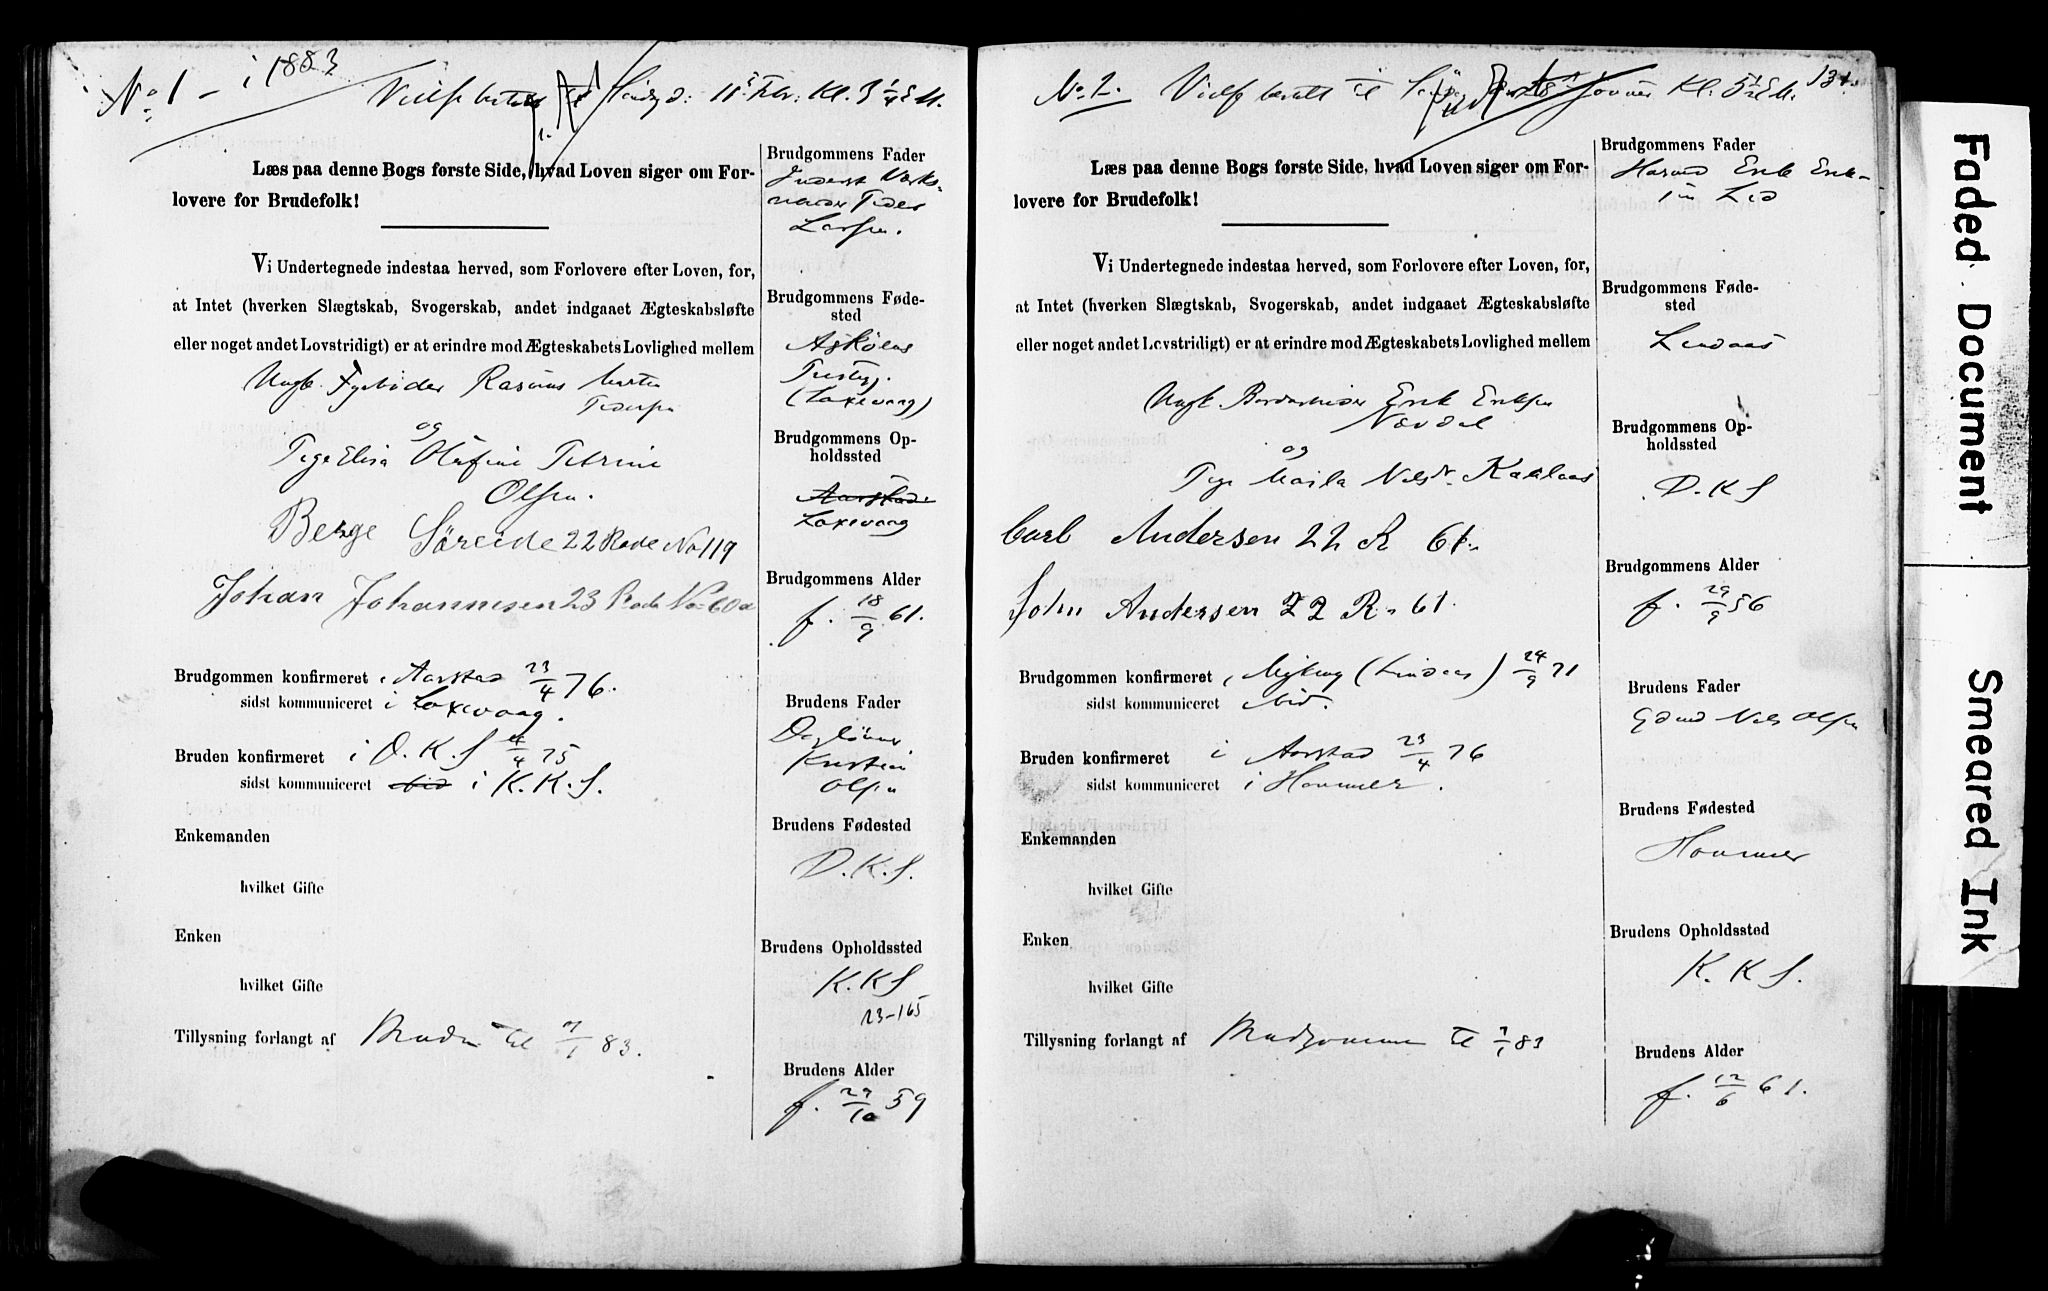 No 1 - i 1883
Vielse til Søndag d: 11 Febr: Kl. 3 1/4 E M.
Læs paa denne Bogs første Side, hvad Loven siger om For-
lovere for Brudefolk!
Vi Undertegnede indestaa herved, som Forlovere efter Loven, for,
at Intet (hverken Slægtskab, Svogerskab, andet indgaaet Ægteskabsløfte
eller noget andet Lovstridigt) er at erindre mod Ægteskabets Lovlighed mellem
Ungk. Fyrbøder Rasmus Martin
Pedersen
og
Pige Elisa Olufine Petrine
Olsen.
Berge Søreide 22 Rode No 119
Johan Johannesen 23 Rode No 60a
Brudgommen konfirmeret i Aarstad 23/4 76.
sidst kommuniceret i Laxevaag.
Bruden konfirmeret i D.K.S 4/4 75
sidst kommuniceret ibid i K.K.S.
Enkemanden
hvilket Gifte
Enken
hvilket Gifte
Tillysning forlangt af Bruden til 7/1 83.
Brudgommens Fader
Inderst Værks-
Peder
Larsen.
Brudgommens Føde-
sted
Askøens
Præstegj.
(Laxevaag)
Brudgommens Op-
holdssted
Aarstad
Laxevaag
Brudgommens Alder
f. 18/9 61.
Brudens Fader
Dagløner
Kristian
Olsen
Brudens Fødested
D.K.S.
Brudens Opholdssted
K.K.S
23-165
Brudens Alder
f. 29/10 59
No. 2. Vielse bestilt til Kl. 5 1/2 E M. 131.
Læs paa denne Bogs første Side, hvad Loven siger om For-
lovere for Brudefolk!
Vi Undertegnede indestaa herved, som Forlovere efter Loven, for,
at Intet (hverken Slægtskab, Svogerskab, andet indgaaet Ægteskabsløfte
eller noget andet Lovstridigt) er at erindre mod Ægteskabets Lovlighed mellem
Ungk. Bordarbeider Erik Eriksen
Nævdal
og
Pige Marta Nilsdr. Kaldaas
Carl Andersen 22 R 61.
John Andersen 22 R. 61.
Brudgommen konfirmeret i Myking (Lindaas) 24/9 71
sidst kommuniceret ibid.
Bruden konfirmeret i Aarstad 23/4 76
sidst kommuniceret i Hammer.
Enkemanden
hvilket Gifte
Enken
hvilket Gifte
Tillysning forlangt af Brudgommen til 7/1 83
Brudgommens Fader
Husmd Erik Erik-
sen Lid
Brudgommens Føde-
sted
Lindaas
Brudgommens Op-
holdssted
D.K.S
Brudgommens Alder
f. 29/9 56
Brudens Fader
Gdmd Nils Olsen
Brudens Fødested
Hammer
Brudens Opholdssted
K.K.S.
Brudens Alder
f. 12/6 61.
Faded Document
Smeared Ink